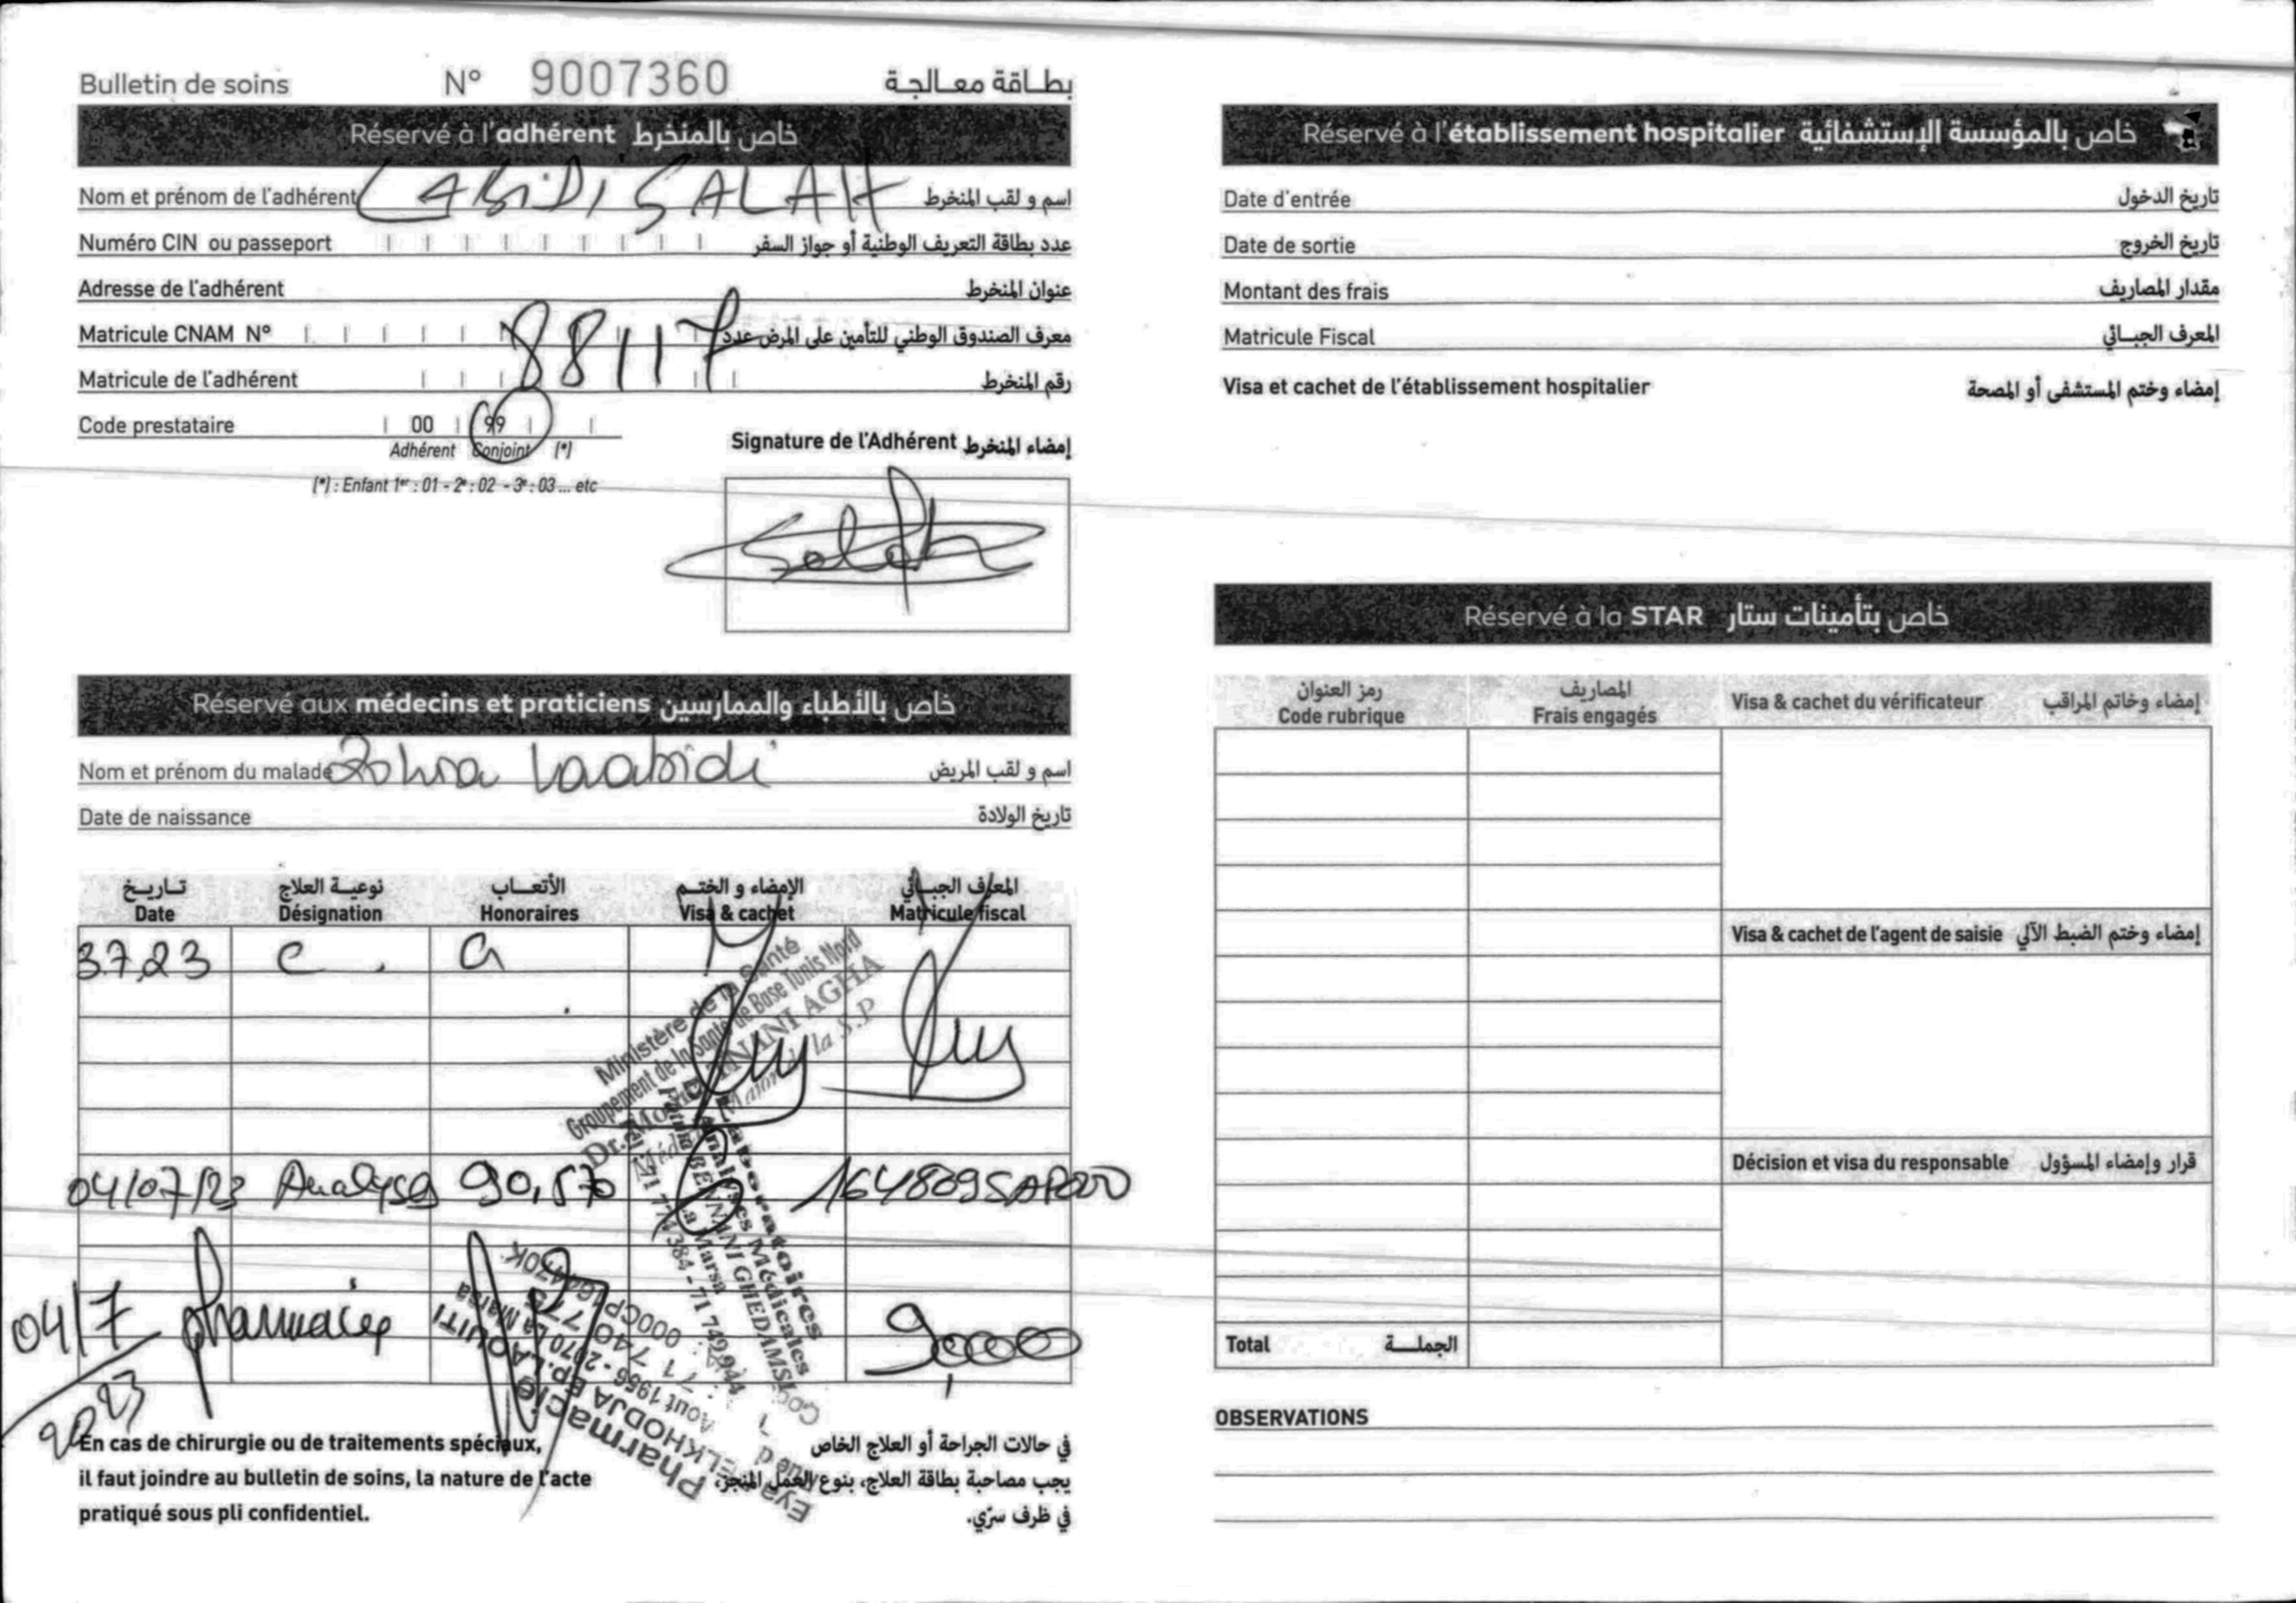 Bulletin de soins N° 9007360 بطاقة معالجة
Réservé à l'adhérent خاص بالمنخرط
Nom et prénom de l'adhérent LABIDI SALAH اسم و لقب المنخرط
Numéro CIN ou passeport عدد بطاقة التعريف الوطنية أو جواز السفر
Adresse de l'adhérent عنوان المنخرط
Matricule CNAM N° معرف الصندوق الوطني للتأمين على المرض عدد
Matricule de l'adhérent 88117 رقم المنخرط
Code prestataire 00 99
Adhérent Conjoint (*)
(*) : Enfant 1er : 01 - 2e : 02 - 3e : 03 ... etc
Signature de l'Adhérent إمضاء المنخرط
Salah
Réservé aux médecins et praticiens خاص بالأطباء والممارسين
Nom et prénom du malade Zohra Laabidi اسم و لقب المريض
Date de naissance تاريخ الولادة
تاريخ نوعية العلاج الأتعاب الإمضاء و الختم المعرف الجبائي
Date Désignation Honoraires Visa & cachet Matricule fiscal
3.7.23 C G
Ministère de la Santé
Groupement de la Santé de Base Tunis Nord
Dr. NANI AGHA
Médecin Major de la S.P
04/07/23 Analyse 90,570
Laboratoires
Analyses Médicales
BENNANI GHEDAMSI
La Marsa
71 774 384 - 71 749 944
04/7 2023 pharmacie 9,000
Pharmacie
Eya ELKHODJA Ep. LAOUITI
Aout 1956 - 2070 La Marsa
En cas de chirurgie ou de traitements spéciaux,
il faut joindre au bulletin de soins, la nature de l'acte
pratiqué sous pli confidentiel.
في حالات الجراحة أو العلاج الخاص
يجب مصاحبة بطاقة العلاج، بنوع العمل المنجز،
في ظرف سرّي.
Réservé à l'établissement hospitalier خاص بالمؤسسة الإستشفائية
Date d'entrée تاريخ الدخول
Date de sortie تاريخ الخروج
Montant des frais مقدار المصاريف
Matricule Fiscal المعرف الجبائي
Visa et cachet de l'établissement hospitalier إمضاء وختم المستشفى أو المصحة
Réservé à la STAR خاص بتأمينات ستار
رمز العنوان المصاريف
Code rubrique Frais engagés Visa & cachet du vérificateur إمضاء وخاتم المراقب
Visa & cachet de l'agent de saisie إمضاء وختم الضبط الآلي
Décision et visa du responsable قرار وإمضاء المسؤول
Total الجملة
OBSERVATIONS